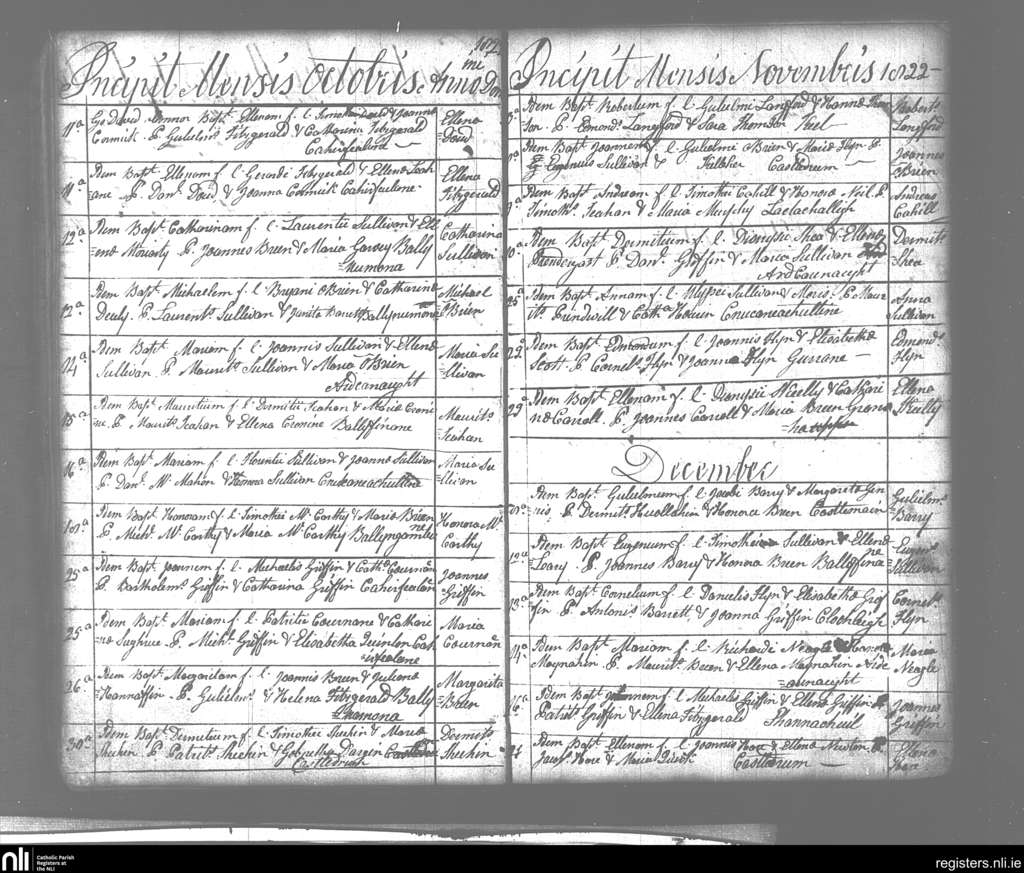 1822
Incipit Mensis Octobris Anno Domi
11a Ego David Connor Bapt. Ellenam f. l. Timothei Doud & Joannæ
Cormick P. Gulielmus Fitzgerald & Catharina Fitzgerald
Cahirfealane
Ellena
Doud
11a Idem Bapt. Ellenam f. l. Geraldi Fitzgerald & Ellenæ Leah
ane P. Danl. Doud & Joanna Cormick Cahirfealane
Ellena
Fitzgerald
12a Idem Bapt. Catharinam f. l. Laurentii Sullivan & Ell
enæ Moriarty P. Joannes Brien & Maria Garvey Bally
=numona
Catharina
Sullivan
12a Idem Bapt. Michaelem f. l. Bryani OBrien & Catharinæ
P. Laurents. Sullivan &
Michael
OBrien
14a Idem Bapt. Mariam f. l. Joannis Sullivan & Ellenæ
Sullivan P. Maurits. Sullivan & Maria OBrien
Ardcanaught
Maria Su
=llivan
15a Idem Bapt. Mauritium f. l. Dermitii Leahan & Mariæ Croni
næ P. Maurits. Leahan & Ellena Cronine Ballyfinane
Maurits.
=Leahan
16a Idem Bapt. Mariam f. l. Florentii Sullivan & Joannæ Sullivan
P. Danl. Mc Mahon & Honora Sullivan Cnucaneachulline
Maria Su
=llivan
18a Idem Bapt. Honoram f. l. Timothei Mc Carthy & Mariæ Brien
P. Michl. Mc Carthy & Maria Mc Carthy
Honora Mc
Carthy
25a Idem Bapt. Joannem f. l. Michaelis Griffin & Cath.
P. Bartholems. Griffin & Catharina Griffin Cahirfealane
Joannes
=Griffin
25a Idem Bapt. Mariam f. l. Patritii Cournane & Cathari
næ Sughrue P. Michl. Griffin & Elisabetha Quinlon Cah
=irfealane
Maria
Cournane
26a Idem Bapt. Margaritam f. l. Joannis Brien & Julianæ
Hannaffin P. Gulielms. & Helena Fitzgerald Bally
=namona
Margarita
=Brien
30a Idem Bapt. Dermitium f. l. Timothei Sheehin & Maria
Sheehin P. Patrits. Sheehin &
Castledrum
Dermits.
Sheehin
Incipit Mensis Novembris 1822
3a Idem Bapt. Robertum f. l. Gulielmi Langford & Hannæ Thom
son P. Edmonds. Langford & Sara Thomson Keel
Roberts.
Langford
7a Idem Bapt. Joannem f. l. Gulielmi OBrien & Mariæ Flyn P.
Eugenius Sullivan & Kelliher Castledrum
Joannes
OBrien
9a Idem Bapt. Andream f. l. Timothei Cahill & Honoræ Neil P.
Timoths. Leahan & Maria Murphy Laclachalligh
Andreas
Cahill
10a Idem Bapt. Dermitium f. l. Dionysii Shea & Ellenæ
Prendergast P. Danl. Griffin & Maria Sullivan
Ardcaunaught
Dermits.
=Shea
25a Idem Bapt. Annam f. l. Ulyssei Sullivan & Mariæ P. Maur
its. Prindwill & Catha. Cnucaneachulline
Anna
Sullivan
22a Idem Bapt. Edmondum f. l. Joannis Flyn & Elisabethæ
Scott P. Cornels. Flyn & Joanna Flyn Gurrane
Edmonds.
Flyn
29a Idem Bapt. Ellenam f. l. Dionysii Kelly & Cathari
næ Carroll P. Joannes Carroll & Maria Brien
Ellena
December
Idem Bapt. Gulielmum f. l. Jacobi Barry & Margaritæ
P. Dermits. & Honora Brien Castlemain
Gulielms.
=Barry
12a Idem Bapt. Eugenium f. l. Timothei Sullivan & Ellenæ
Leary P. Joannes Barry & Honora Brien Ballyfina
ne
Eugens.
Sullivan
13a Idem Bapt. Cornelium f. l. Danielis Flyn & Elisabethæ Grif
fin P. Antonis Barrett & Joanna Griffin Clochleigh
Cornels.
Flyn
14a Idem Bapt. Mariam f. l. Richardi Neagle & Honoræ
Moynahin P. Maurits. Brien & Ellena Moynahin
Maria
Neagle
16a Idem Bapt. Joannem f. l. Michaelis Griffin & Ellenæ Griffin P.
Patrits. Griffin & Ellena Fitzgerald Shannacheuil
Joannes
Griffin
Idem Bapt. Ellenam f. l. Joannis Hore & Ellenæ Newton P.
Jacobs. Hore & Maria Castledrum
nli Catholic Parish
Registers at
the NLI
registers.nli.ie